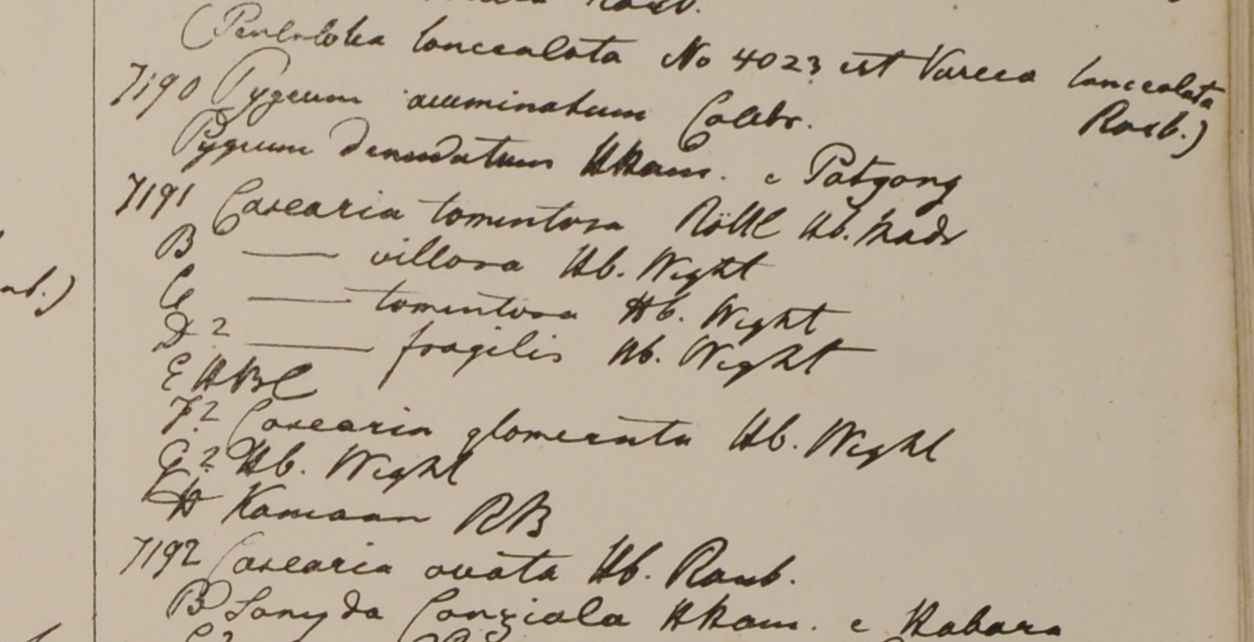 Roxb.
(Pentaloba lanceolata No 4023 est Vareca lanceolata
Roxb.)
7190 Pygeum acuminatum Colebr.
Pygeum denudatum HHam. e Patgong
7191 Casearia tomentosa Röttl Hb. Madr
B — villosa Hb. Wight
C — tomentosa Hb. Wight
D? — fragilis Hb. Wight
E HBC
F? Casearia glomerata Hb. Wight
G? Hb. Wight
H Kamaon RB
7192 Casearia ovata Hb. Roxb.
B Samyda HHam. e